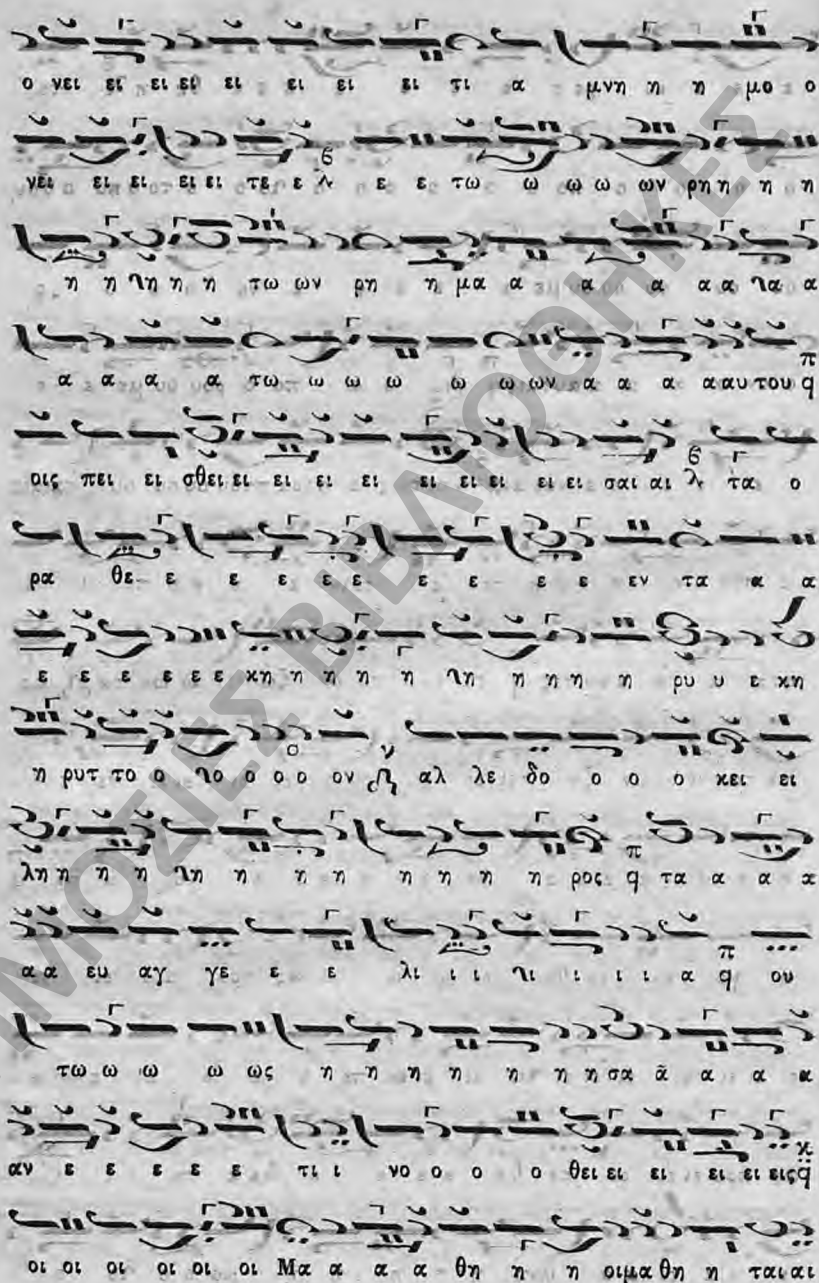 ο νει ει ει ει ει ει ει ει τι α μνη η η μο ο
νει ει ει ει ει τε ε λ ε ε τω ω ω ω ων ρη η η η
η η λη η η τω ων ρη η μα α α α α α λα α
α α α α τω ω ω ω ω ω ων α α α α αυ του q
οις πει ει σθει ει ει ει ει ει ει ει ει ει σαι αι λ τα ο
ρα θε ε ε ε ε ε ε ε ε ε εν τα α α
ε ε ε ε ε ε κη η η η η λη η η η η ρυ υ ε κη
η ρυτ το ο λο ο ο ο ον αλ λε δο ο ο ο κει ει
λη η η η λη η η η η η η η ρος q τα α α α
α α ευ αγ γε ε ε λι ι ι λι ι ι ι α q ου
τω ω ω ω ως η η η η η η η σα α α α α
αν ε ε ε ε ε τι ι νο ο ο ο θει ει ει ει ει εις q
οι οι οι οι οι οι Μα α α α θη η η οι μα θη η ται αι
ΒΙΒΛΙΟΘΗΚΕΣ